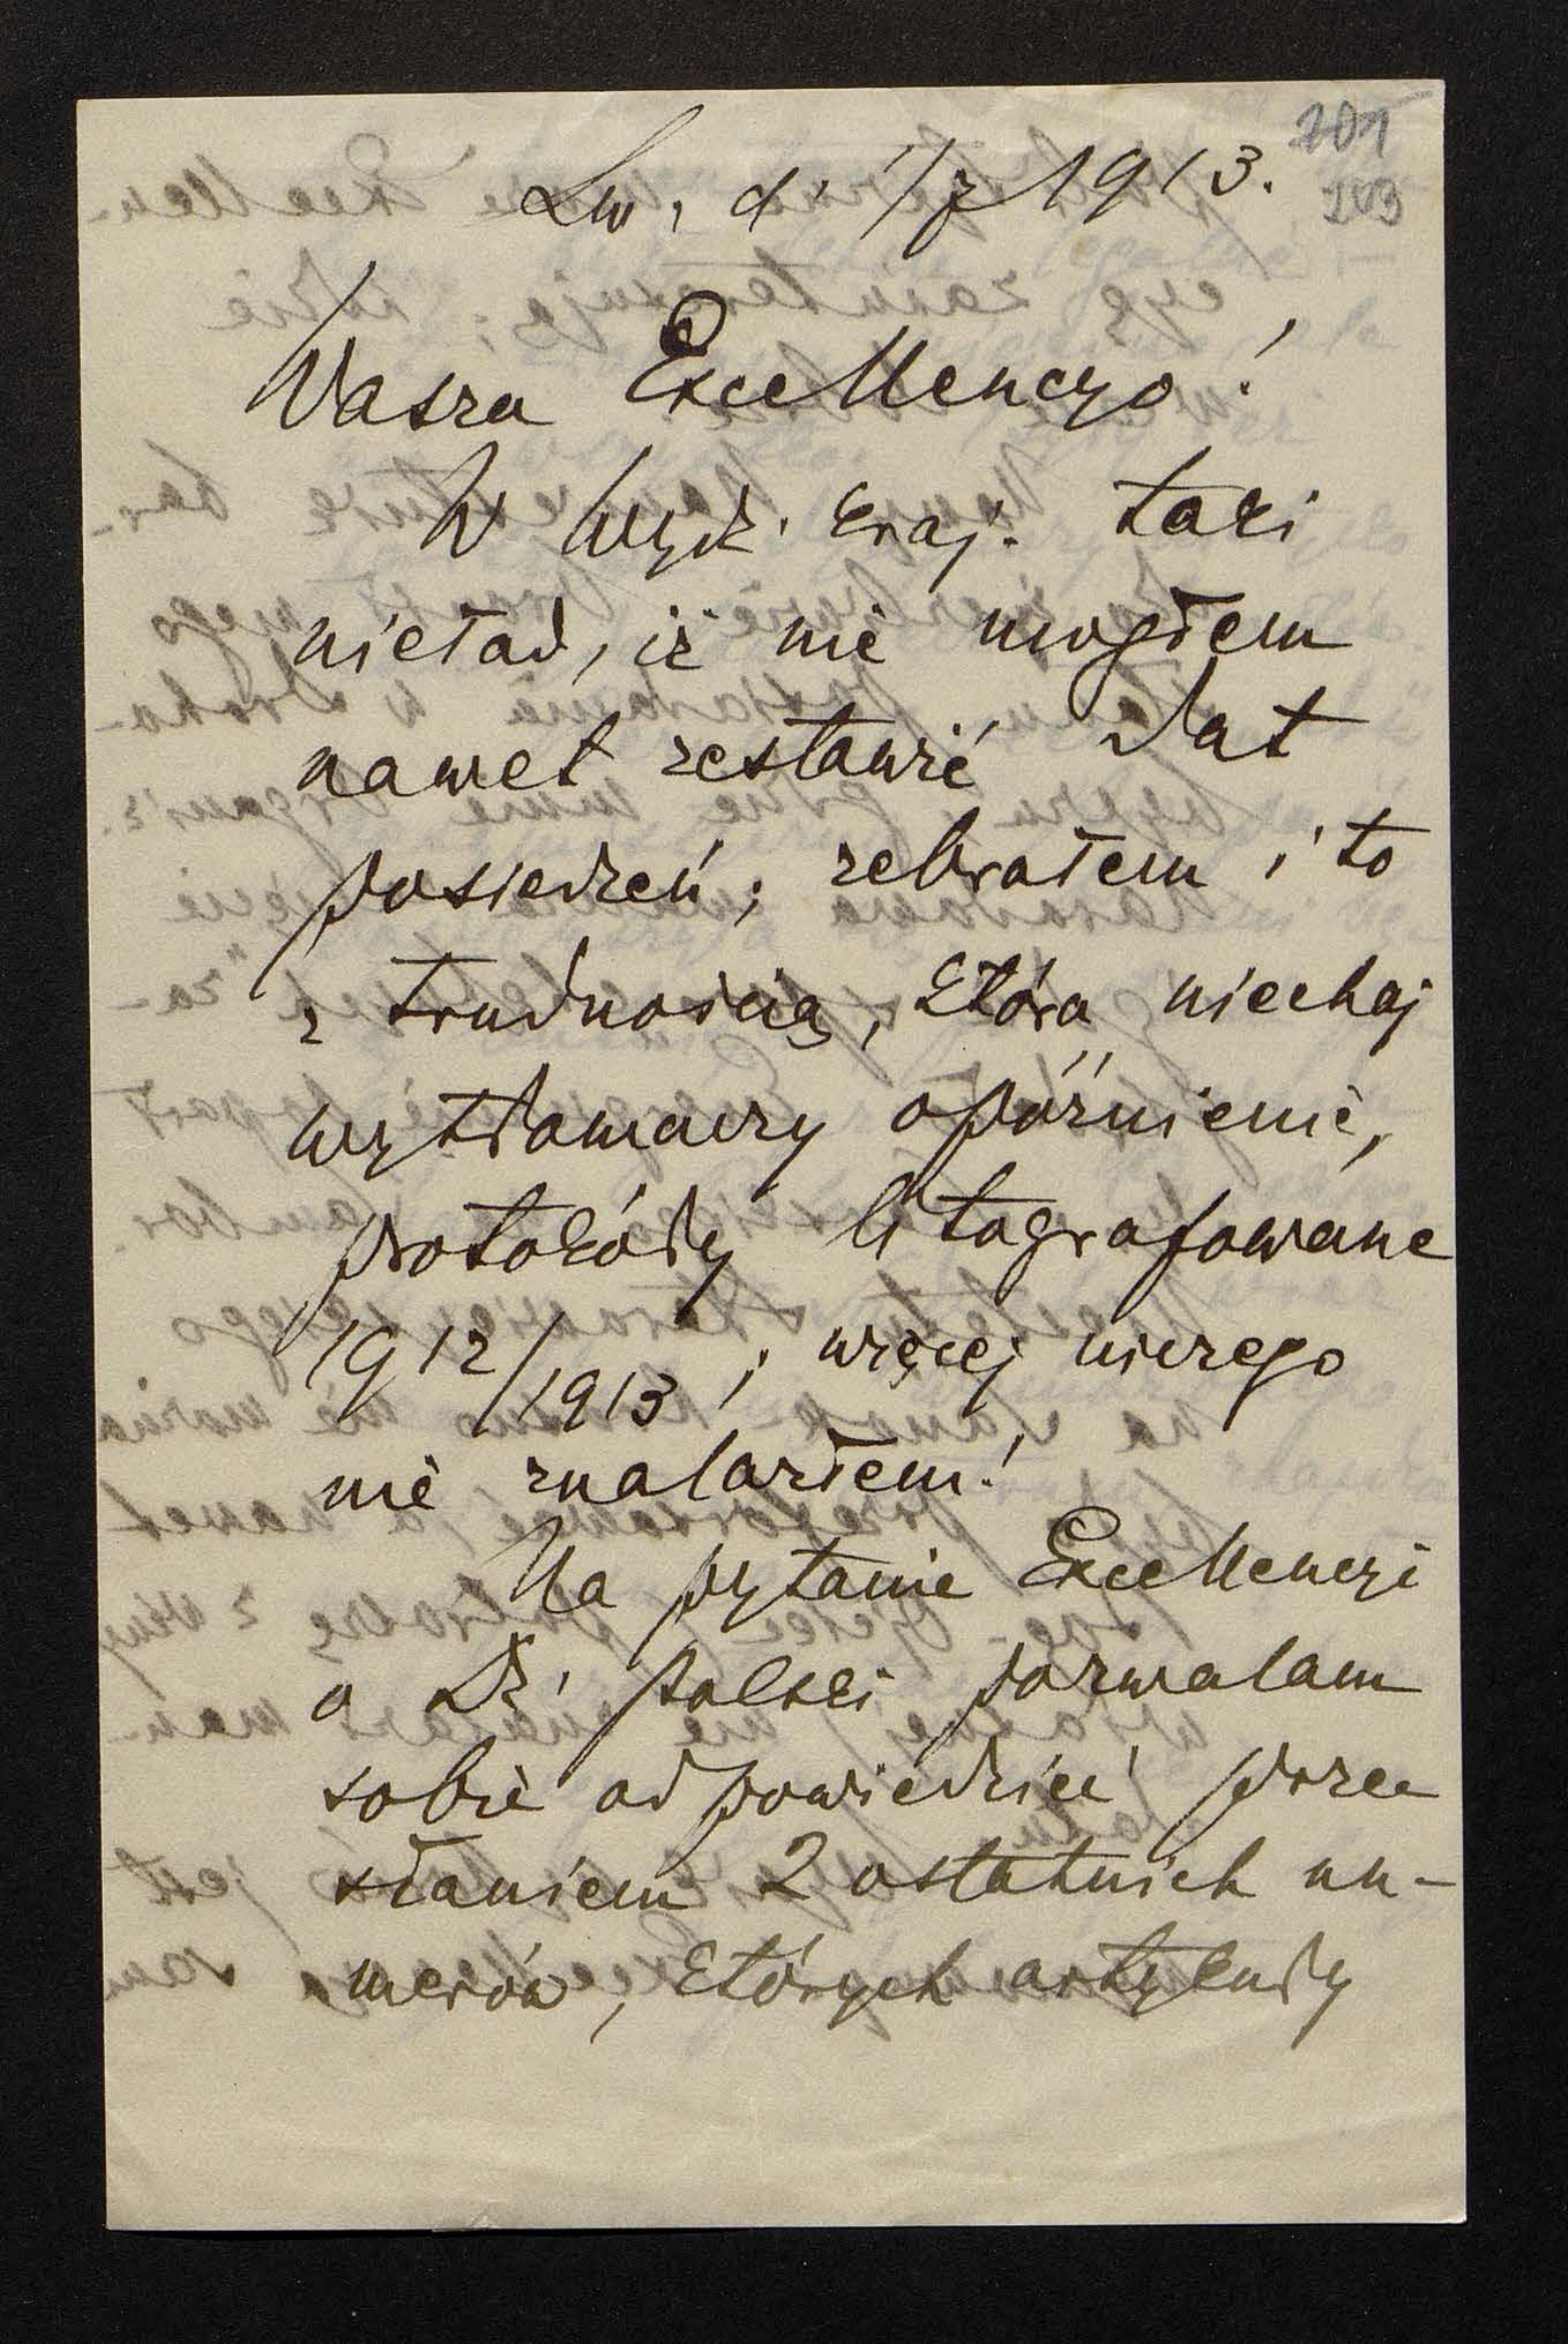 Lw. d. 1/7 1913.
201
203
Wasza Excellencyo!
W Wydz. kraj. taki
nieład, iż nie mogłem
nawet zestawić dat
posiedzeń; zebrałem i to
z trudnością, która niechaj
wytłomaczy opóźnienie,
protokóły litografowane
1912/1913; więcej niczego
nie znalazłem!
Na pytanie Excellencyi
o Dz. polski pozwalam
sobie odpowiedzieć prze
słaniem 2 ostatnich nu-
merów, których artykuły